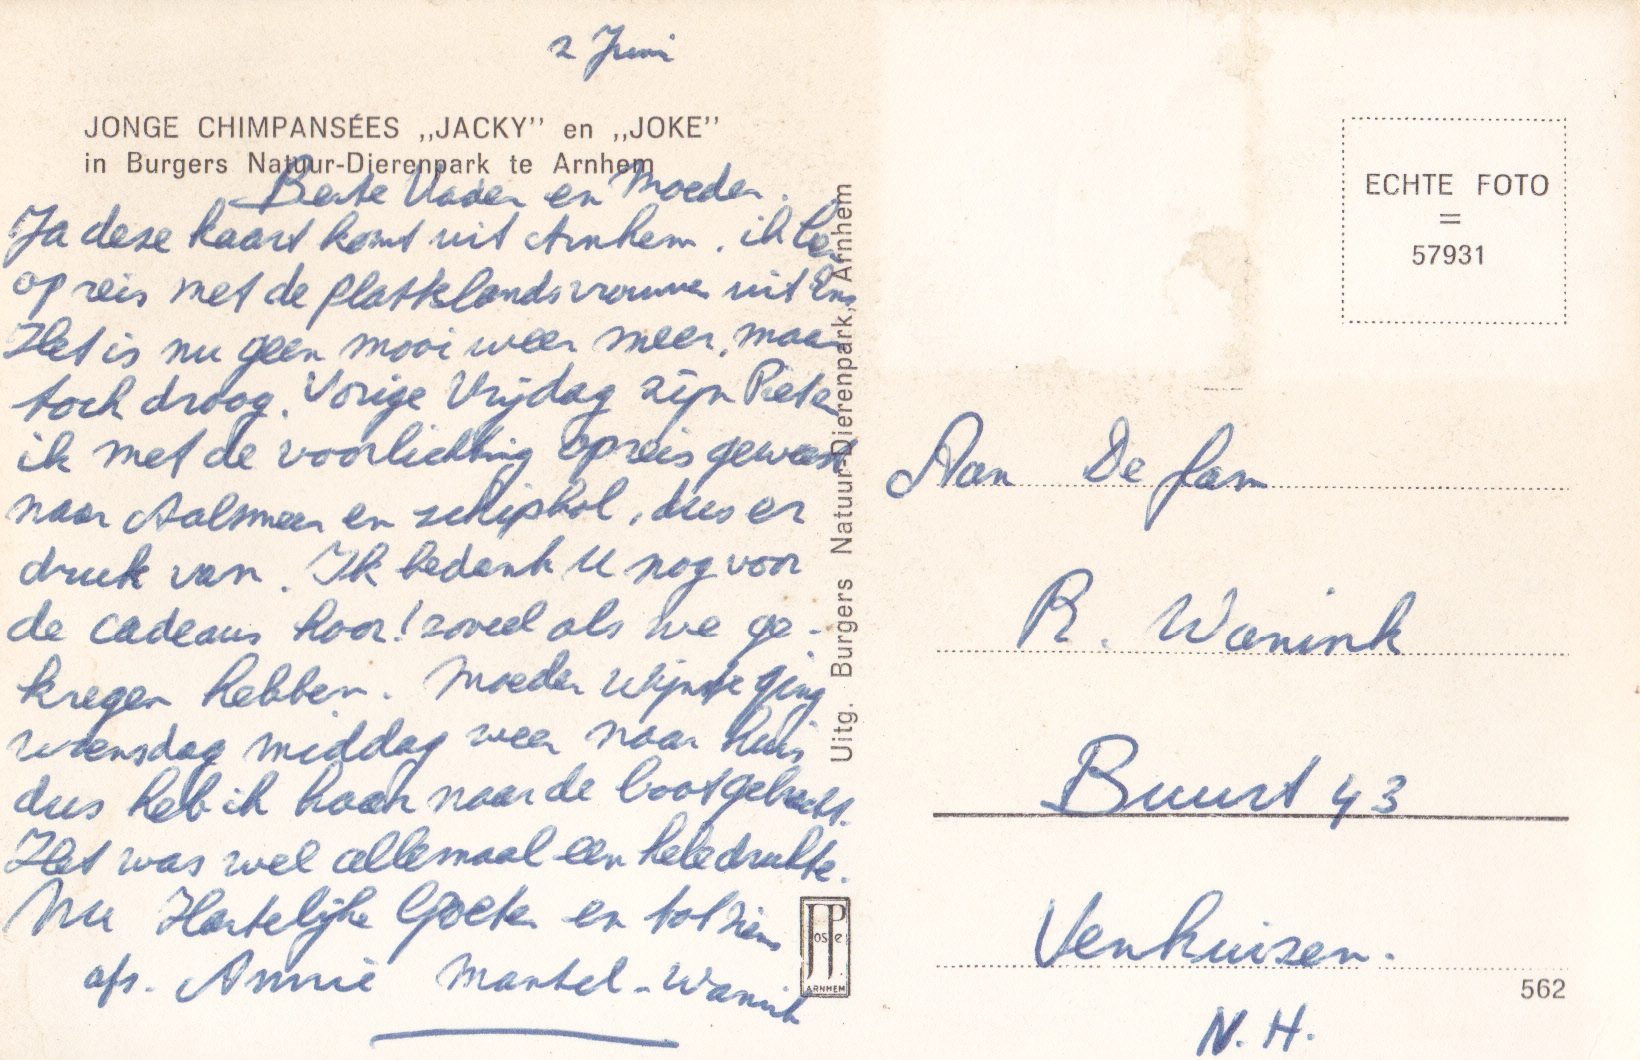 2 Juni
JONGE CHIMPANSÉES „JACKY" en „JOKE"
in Burgers Natuur-Dierenpark te Arnhem
Beste Vader en Moeder.
Ja deze kaart komt uit Arnhem. ik ben
op reis met de plattelandsvrouwen uit Ens
Het is nu geen mooi weer meer, maar
toch droog. Vorige Vrijdag zijn Piet en
ik met de voorlichting op reis geweest
naar Aalsmeer en schiphol, dus er
druk van. Ik bedank U nog voor
de cadeaus hoor! zoveel als we ge-
kregen hebben. Moeder ging
woensdag middag weer naar huis
dus heb ik haar naar de boot gebracht.
Het was wel allemaal een hele drukte.
Nu Hartelijke Groeten en tot ziens
afs. Annie Mantel-Wanink
Uitg. Burgers Natuur-Dierenpark, Arnhem
JosPe
ARNHEM
ECHTE FOTO
=
57931
Aan De fam
R. Wanink
Buurt 43
Venhuizen.
N.H.
562